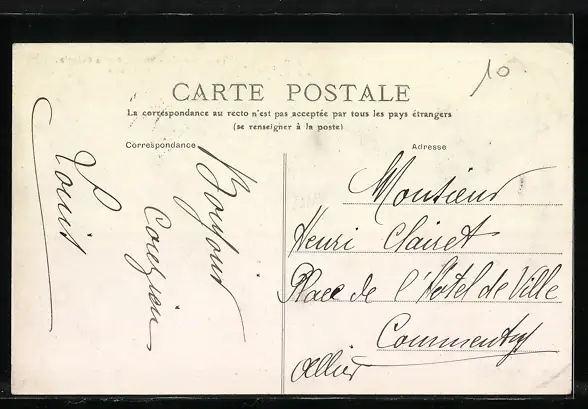 10
CARTE POSTALE
La correspondance au recto n'est pas acceptée par tous les pays étrangers
(se renseigner à la poste)
Correspondance
Adresse
Bonjour
Cousin
Louis
Monsieur
Henri Clairet
Place de l'Hotel de Ville
Commentry
Allier